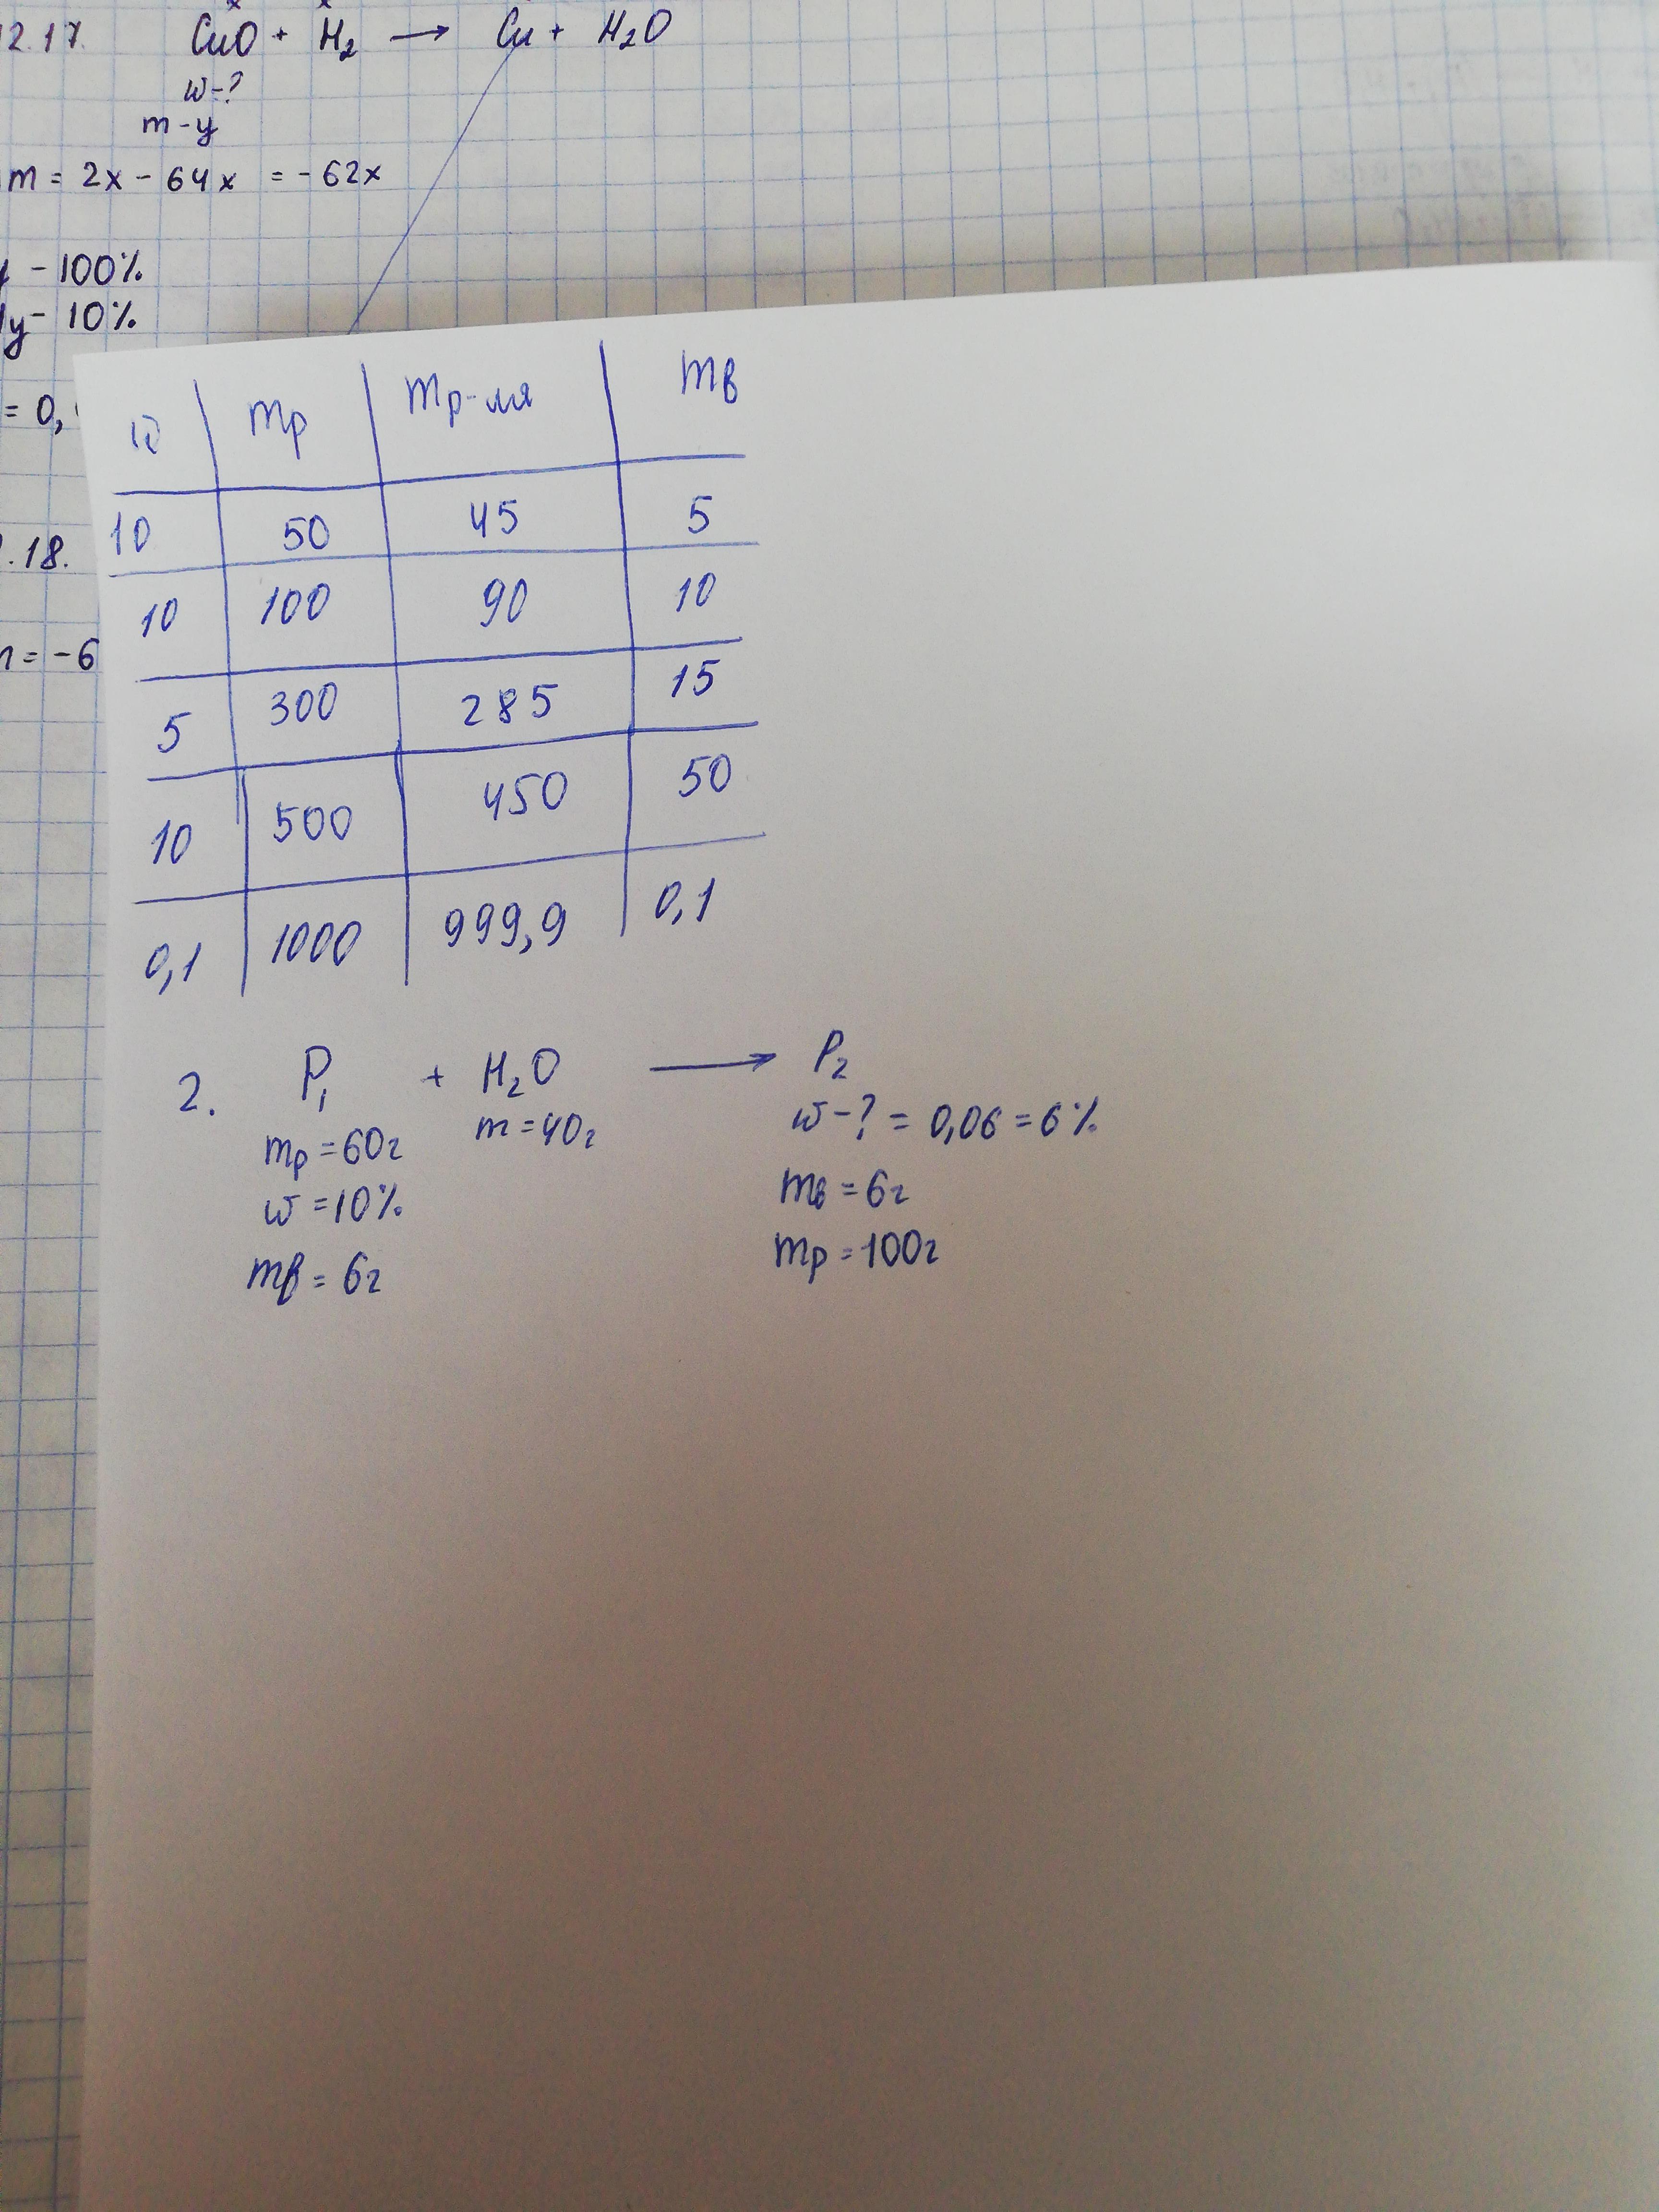 12.17. CuO + H₂ ⟶ Cu + H₂O
x x
ω-?
m-y
m = 2x - 64x = -62x
y - 100%
1y - 10%
= 0,
.18.
m = -6
ω | mр | mр-ля | mв
10 | 50 | 45 | 5
10 | 100 | 90 | 10
5 | 300 | 285 | 15
10 | 500 | 450 | 50
0,1 | 1000 | 999,9 | 0,1
2. P₁ + H₂O ⟶ P₂
mр = 60г m = 40г ω-? = 0,06 = 6%
ω = 10% mв = 6г
mв = 6г mр = 100г